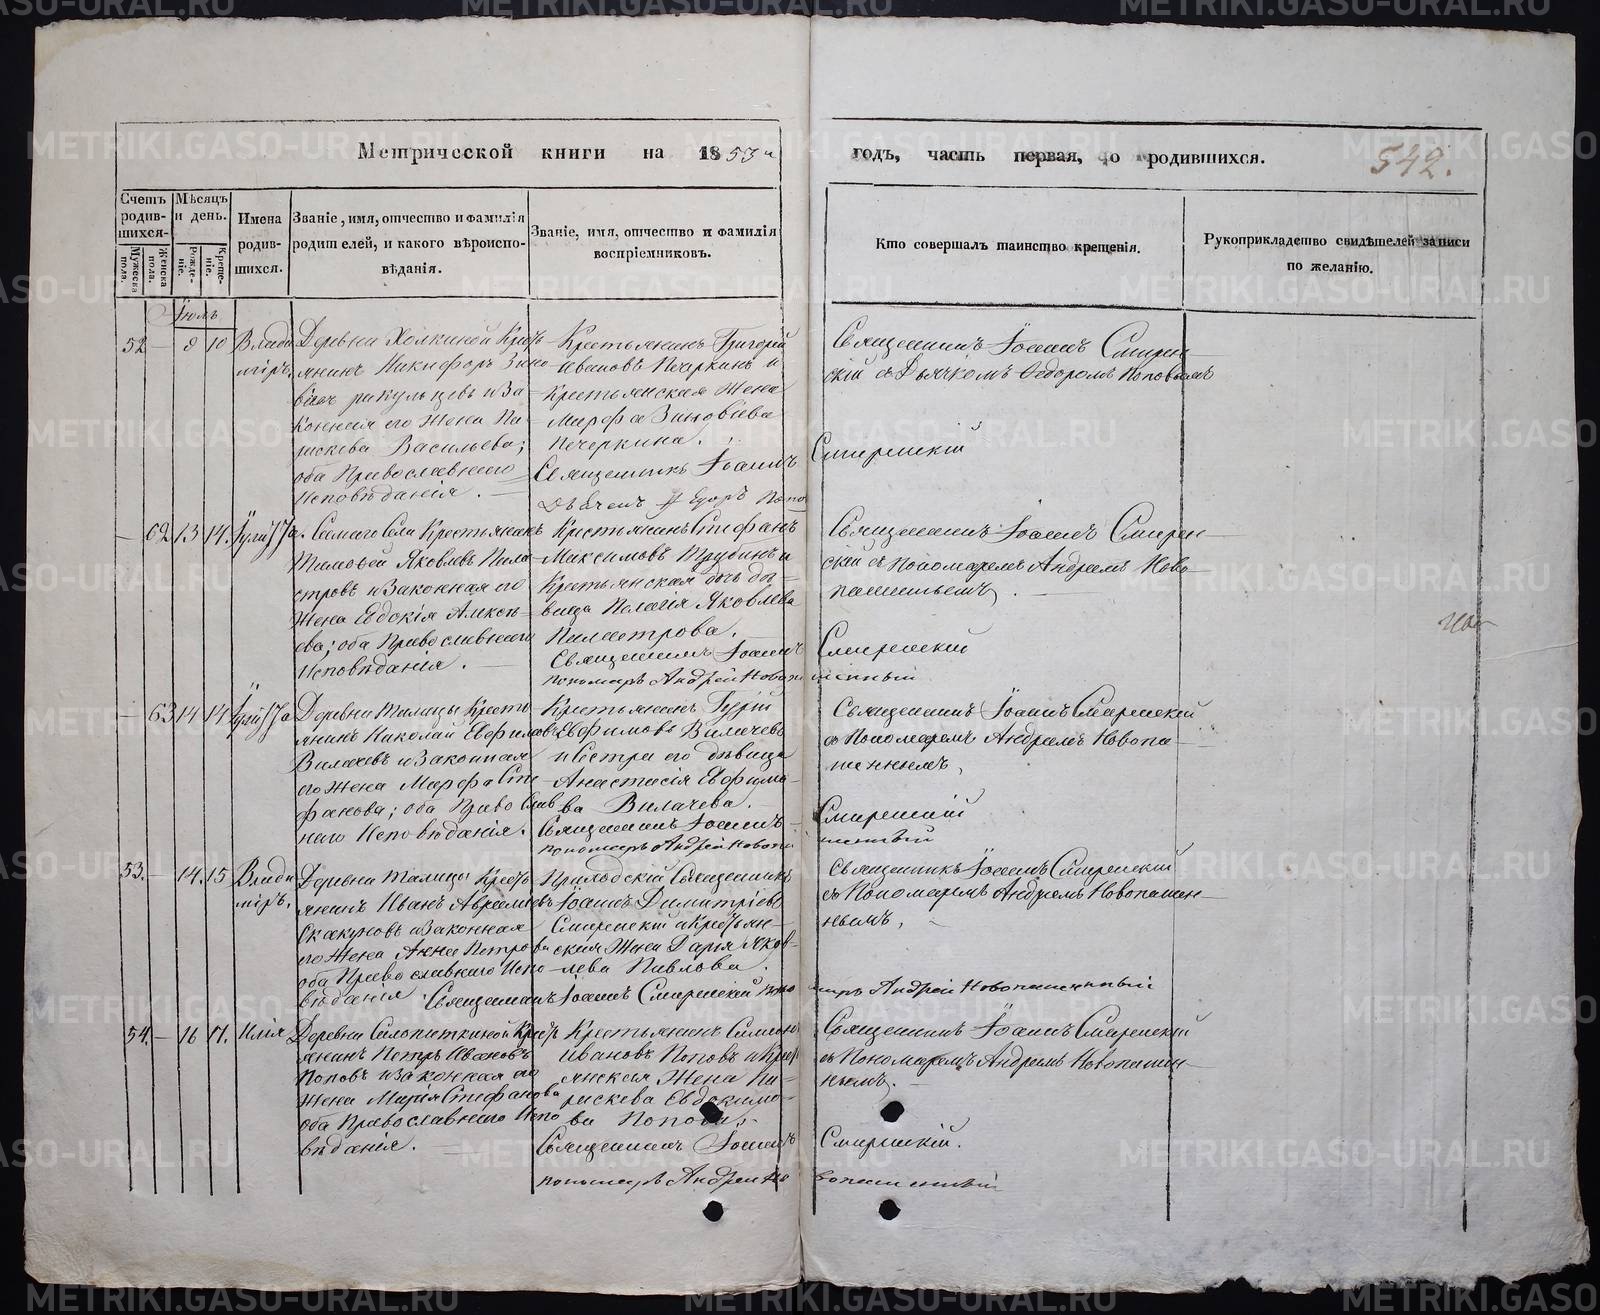 Метрической книги на 1853й
годъ, часть первая, о родившихся.
542.
Счетъ родив-шихся.
Мужеска пола.
Женска пола.
Мѣсяцъ и день.
Рожде-ніе.
Креще-ніе.
Имена родив-шихся.
Званіе, имя, отчество и фамилія
родителей, и какого вѣроиспо-
вѣданія.
Званіе, имя, отчество и фамилія
воспріемниковъ.
Кто совершалъ таинство крещенія.
Рукоприкладство свидѣтелей записи
по желанію.
Іюль
52 — 8 10 Влади
міръ.
Деревни Холкиной Кресть
янинъ Никифоръ Зино
вьевъ и За
конная его Жена Па
раскева Васильева;
оба Православнаго
Исповѣданія.
Крестьянинъ Григорій
Ивановъ Печеркинъ и
Крестьянская Жена
Марфа Зиновіева
Печеркина.
Священникъ Іоаннъ
Священникъ Іоаннъ Смирен-
скій съ Дьячкомъ Ѳедоромъ Поповымъ
Смиренскій
— 62 13 14. Іулитта.
Самаго Села Крестьянинъ
Тимофей Яковлевъ Пила
стровъ и Законная его
Жена Евдокія Алексѣ-
ева; оба Православнаго
Исповѣданія.
Крестьянинъ Стефанъ
Максимовъ Трубинъ и
Крестьянская дочь дѣ-
вица Пелагія Яковлева
Пиластрова.
Священникъ Іоаннъ
пономарь Андрей Новопа
Священникъ Іоаннъ Смирен-
скій съ Пономаремъ Андреемъ Ново-
пашеннымъ.
Смиренскій
шенный
— 63 14 14 Іулитта
Деревни Талицы Кресть
янинъ Николай Евфимовъ
Вилачевъ и Законная
его Жена Марфа Сте-
фанова; оба Православ
наго Исповѣданія.
Крестьянинъ Гурій
Евфимовъ Вилачевъ
и Сестра его дѣвица
Анастасія Евфимо-
ва Вилачева.
Священникъ Іоаннъ
пономарь Андрей Новопа
Священникъ Іоаннъ Смиренскій
съ Пономаремъ Андреемъ Новопа-
шеннымъ,
Смиренскій
шенный
53. — 14. 15 Влади
міръ.
Деревни Талицы Кресть
янинъ Иванъ
Скакуновъ и Законная
его Жена Анна Петрова
оба Православнаго Испо-
вѣданія
Приходскій Священникъ
Іоаннъ Димитріевъ
Смиренскій и Крестьян-
ская Жена Дарія Яков-
лева Павлова.
Священникъ Іоаннъ Смиренскій поно
Священникъ Іоаннъ Смиренскій
съ Пономаремъ Андреемъ Новопашен-
нымъ.
марь Андрей Новопашенный
54. — 16 17. Илія
Кресть
янинъ Петръ Ивановъ
Поповъ и Законная его
Жена Марія Стефанова
оба Православнаго Испо
вѣданія.
Крестьянинъ Симеонъ
Ивановъ Поповъ и Кресть
янская Жена Па-
раскева Евдокимо-
ва Попова.
Священникъ Іоаннъ
пономарь Андрей Но
Священникъ Іоаннъ Смиренскій
съ Пономаремъ Андреемъ Новопашен-
нымъ.
Смиренскій.
вопашенный
METRIKI.GASO-URAL.RU